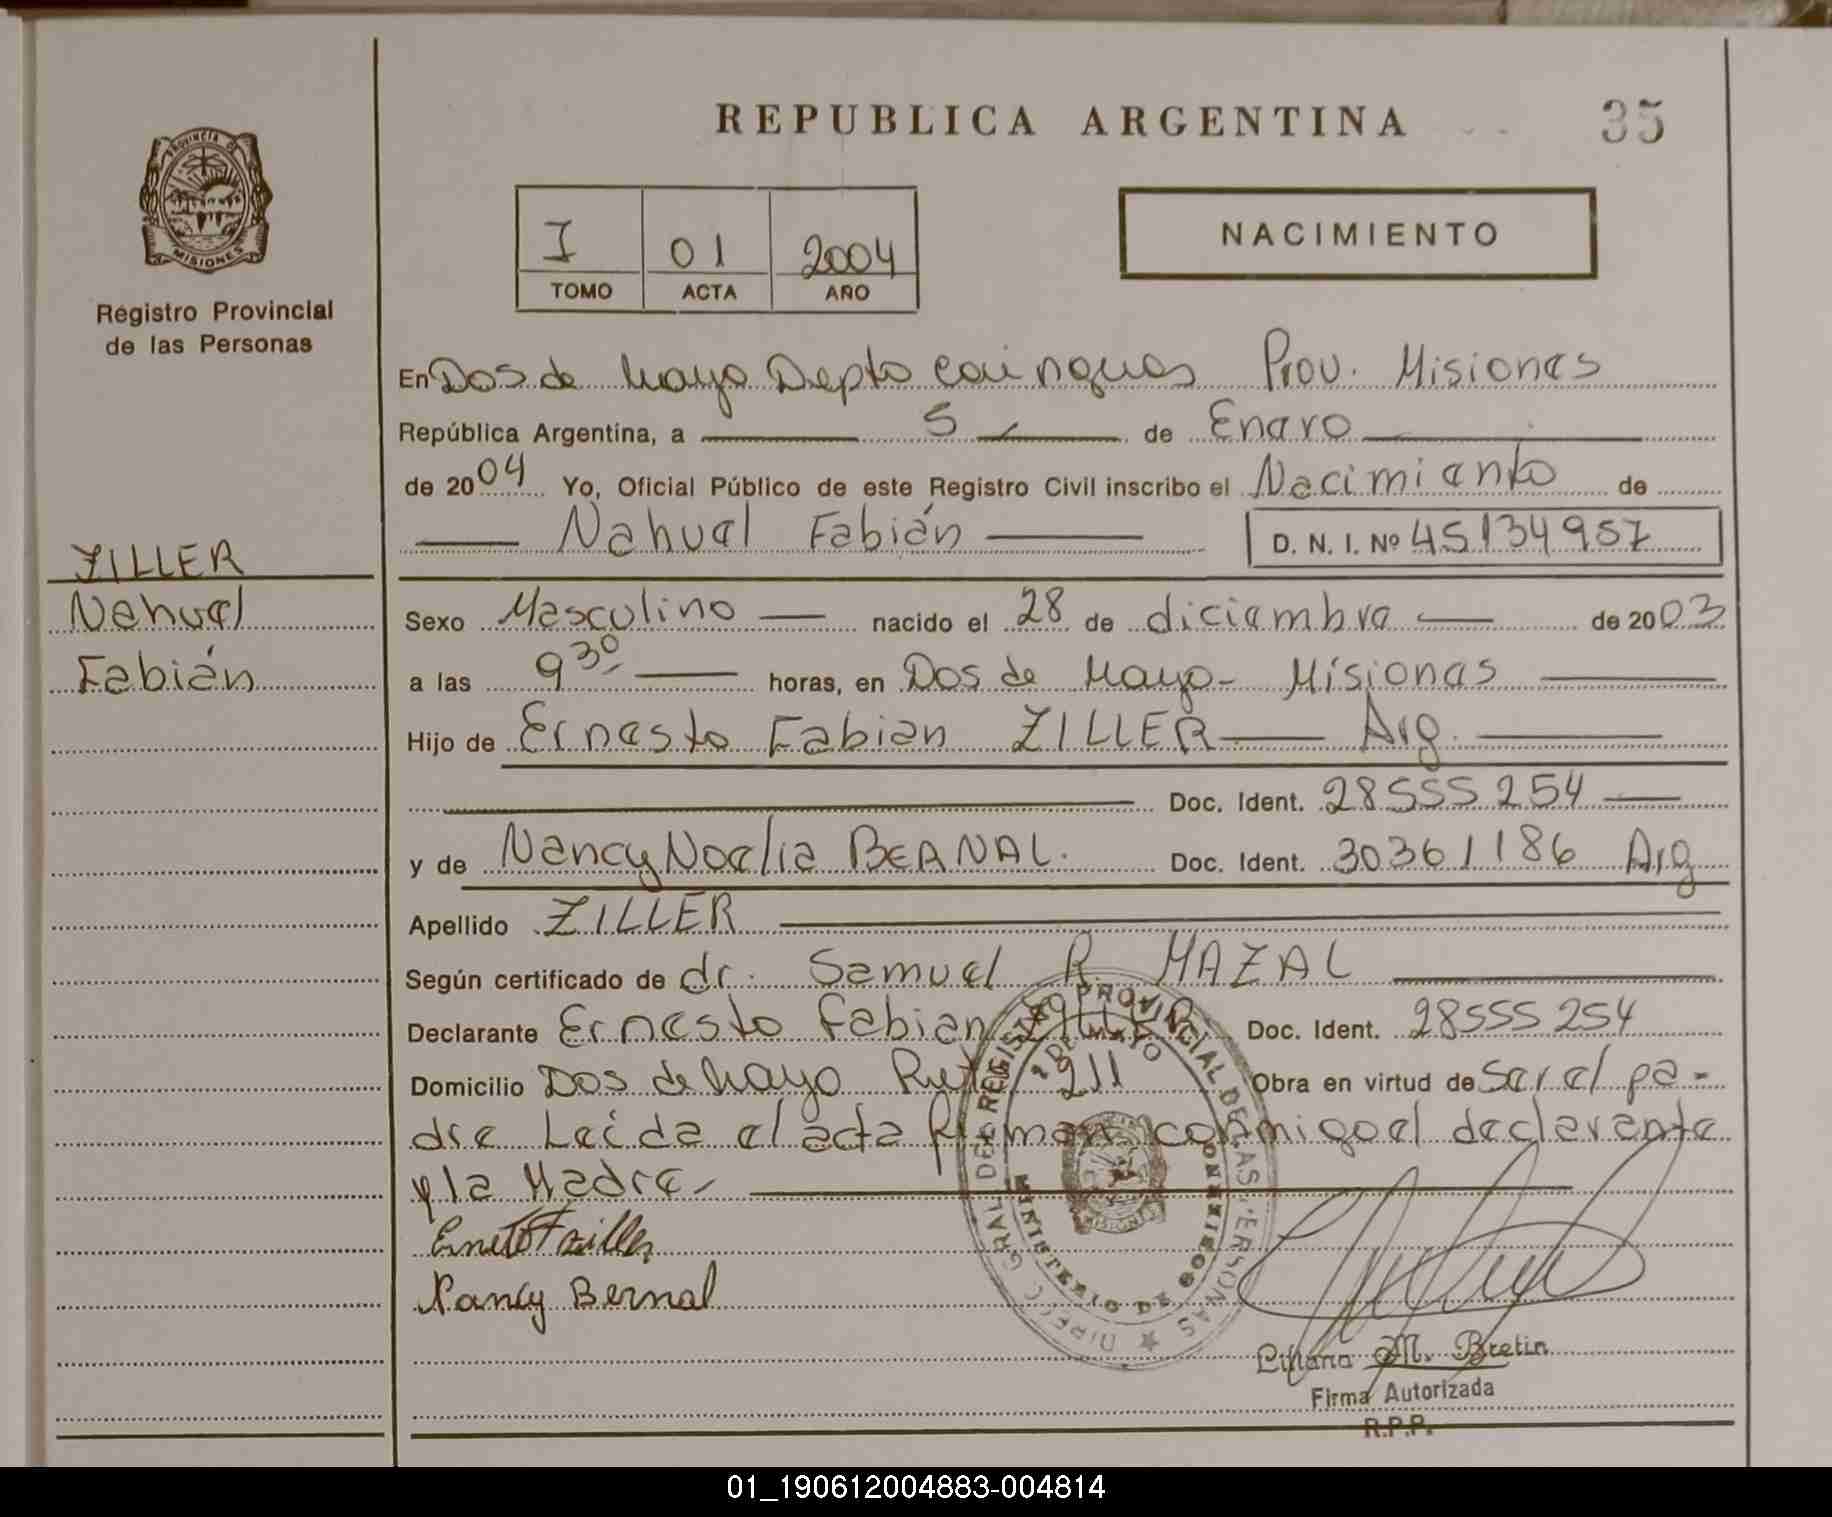 REPUBLICA ARGENTINA
35
PROVINCIA D
MISIONES
Registro Provincial
de las Personas
I 01 2004
TOMO ACTA AÑO
NACIMIENTO
En Dos de Mayo Depto Cainguas Prov. Misiones
República Argentina, a 5 de Enero
de 2004 Yo, Oficial Público de este Registro Civil inscribo el Nacimiento de
Nahuel Fabián D. N. I. Nº 45134957
ZILLER
Nahuel
Fabián
Sexo Masculino nacido el 28 de diciembre de 2003
a las 9 30 horas, en Dos de Mayo - Misiones
Hijo de Ernesto Fabian ZILLER Arg.
Doc. Ident. 28555254
y de Nancy Noelia BERNAL. Doc. Ident. 30361186 Arg
Apellido ZILLER
Según certificado de dr. Samuel R. MAZAL
Declarante Ernesto Fabian Doc. Ident. 28555254
Domicilio Dos de Mayo Ruta 211 Obra en virtud de ser el pa-
dre Leida el acta Firman conmigo el declarante
y la Madre
Nancy Bernal
DIREC. GRAL. DEL REGISTRO PROVINCIAL DE LAS PERSONAS
2 DE MAYO
MINISTERIO DE GOBIERNO
MISIONES
Liliana M. Bretin
Firma Autorizada
R.P.P.
01_190612004883-004814